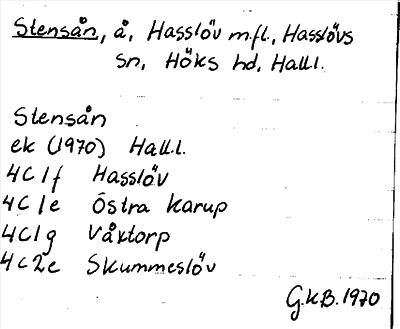 Stensån, å, Hasslöv m.fl., Hasslövs
sn, Höks hd, Hall.
Stensån
ek (1970) Hall.
4C1f Hasslöv
4C1e Östra Karup
4C1g Våxtorp
4C2e Skummeslöv
G.K.B. 1970